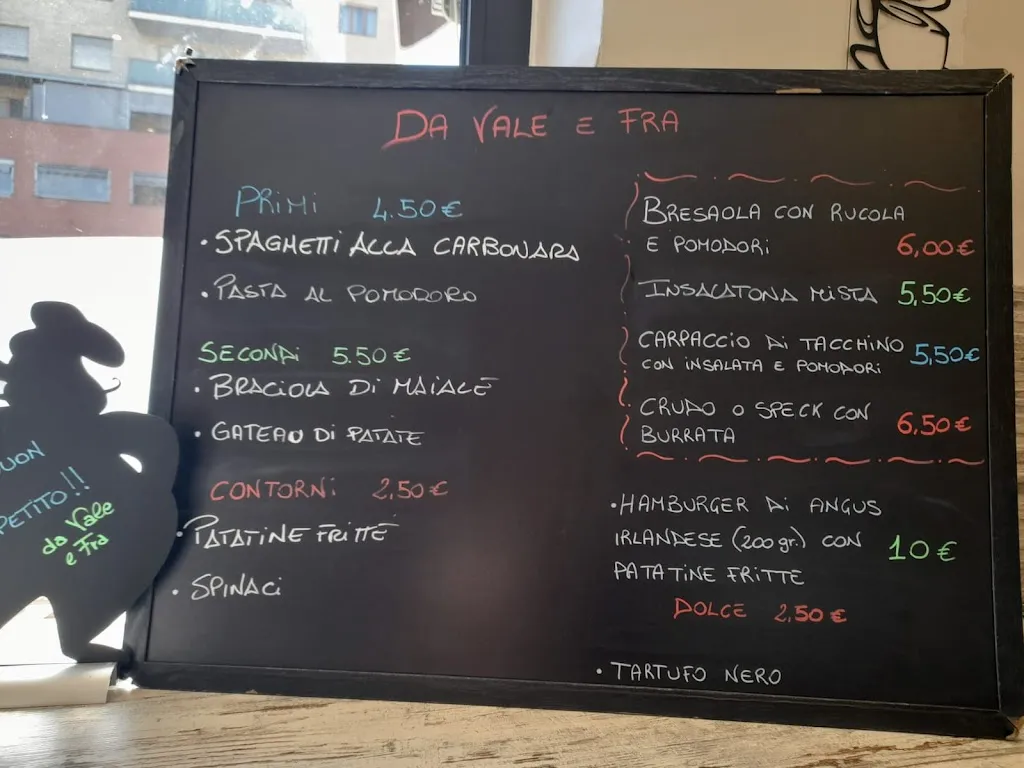 DA VALE E FRA
PRIMI 4.50 €
• SPAGHETTI ALLA CARBONARA
• PASTA AL POMODORO
SECONDI 5.50 €
• BRACIOLA DI MAIALE
• GATEAU DI PATATE
CONTORNI 2,50 €
• PATATINE FRITTE
• SPINACI
BRESAOLA CON RUCOLA
E POMODORI 6,00 €
INSALATONA MISTA 5,50 €
CARPACCIO DI TACCHINO 5,50 €
CON INSALATA E POMODORI
CRUDO O SPECK CON
BURRATA 6,50 €
• HAMBURGER DI ANGUS
IRLANDESE (200 gr.) CON 10 €
PATATINE FRITTE
DOLCE 2,50 €
• TARTUFO NERO
UON
PETITO!!
da Vale
e Fra